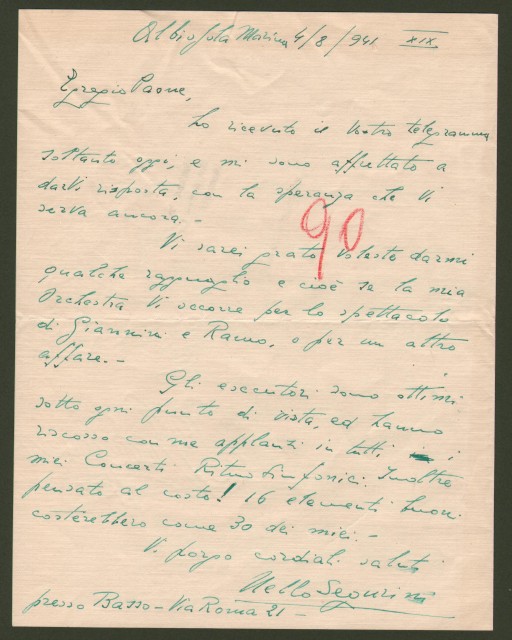 Albissola Marina 4/8/941 XIX
Egregio Paone,
ho ricevuto il Vostro telegramma
soltanto oggi, e mi sono affrettato a
darVi risposta, con la speranza che Vi
serva ancora.-
90
Vi sarei grato voleste darmi
qualche ragguaglio e cioè se la mia
Orchestra Vi occorre per lo spettacolo
di Giannini e Ramo, o per un altro
affare.-
Gli esecutori sono ottimi
sotto ogni punto di vista, ed hanno
riscosso con me applausi in tutti i
miei Concerti Ritmo Sinfonici. Inoltre
pensate al costo! 16 elementi buoni
costerebbero come 30 dei miei.-
Vi porgo cordiali saluti
Nello Segurini
presso Basso - Via Roma 21 -